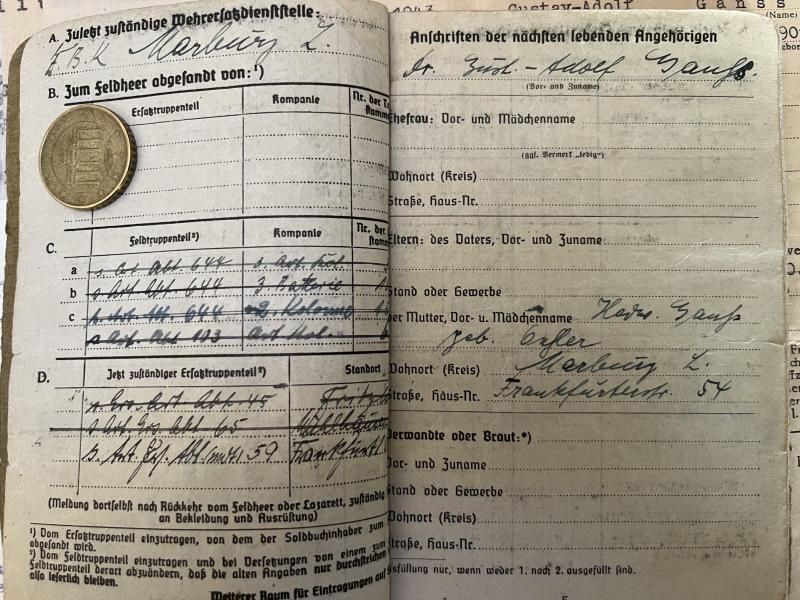 1943 Gustav-Adolf Ganß
(Name)
A. Zuletzt zuständige Wehrersatzdienststelle:
W.B.K Marburg L.
B. Zum Feldheer abgesandt von:¹)
Ersatztruppenteil Kompanie Nr. der
C. Feldtruppenteil²) Kompanie Nr. der
a s. Art Abt 644 3. Art Kol.
b s Art Abt 644 3. Batterie
c s. Art. Abt. 644 2. Kolonne
s Art. Abt 193 Art Kol.
D. Jetzt zuständiger Ersatztruppenteil²) Standort
s. Ers. Art. Abt. 45
s Art. Ers. Abt 65 Mühlhausen
s. Art. Ers. Abt. (mot) 59 Frankfurt
(Meldung dortselbst nach Rückkehr vom Feldheer oder Lazarett, zuständig
an Bekleidung und Ausrüstung)
¹) Vom Ersatztruppenteil einzutragen, von dem der Soldbuchinhaber zum
abgesandt wird.
²) Vom Feldtruppenteil einzutragen und bei Versetzungen von einem zum
Feldtruppenteil derart abzuändern, daß die alten Angaben nur durchstrichen
also leserlich bleiben.
Weiterer Raum für Eintragungen auf
Anschriften der nächsten lebenden Angehörigen
Dr. Gust.-Adolf Ganß.
(Vor- und Zuname)
Ehefrau: Vor- und Mädchenname
(ggf. Vermerk „ledig")
Wohnort (Kreis)
Straße, Haus-Nr.
Eltern: des Vaters, Vor- und Zuname
Stand oder Gewerbe
der Mutter, Vor- u. Mädchenname Hedw. Ganß
geb.
Wohnort (Kreis) Marburg L.
Straße, Haus-Nr. Frankfurterstr. 54
Verwandte oder Braut:*)
Vor- und Zuname
Stand oder Gewerbe
Wohnort (Kreis)
Straße, Haus-Nr.
Ausfüllung nur, wenn weder 1. noch 2. ausgefüllt sind.